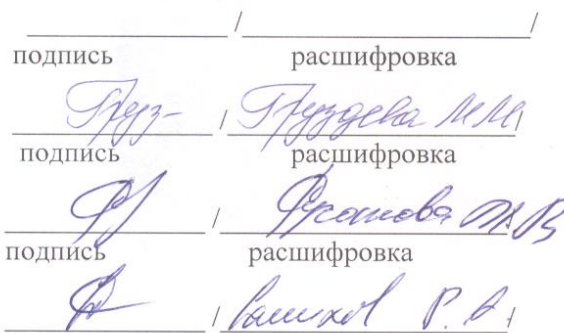 / /
подпись расшифровка
Груз- / Груздева М М /
подпись расшифровка
/
подпись расшифровка
/ Р. А /